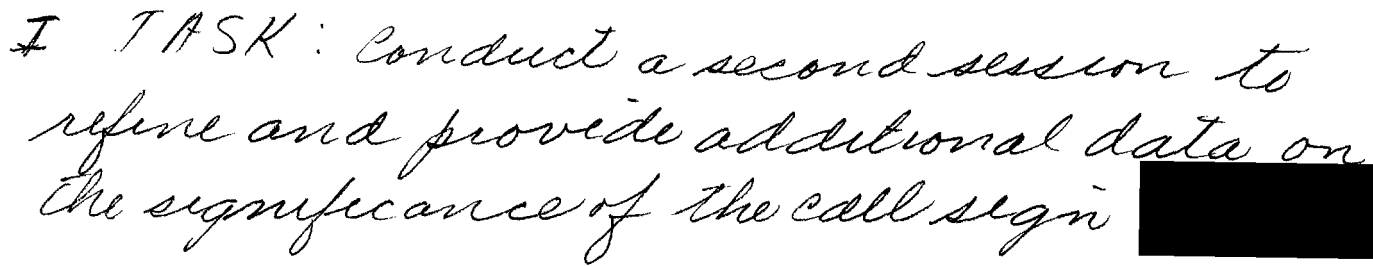 I TASK: Conduct a second session to
refine and provide additional data on
the significance of the call sign